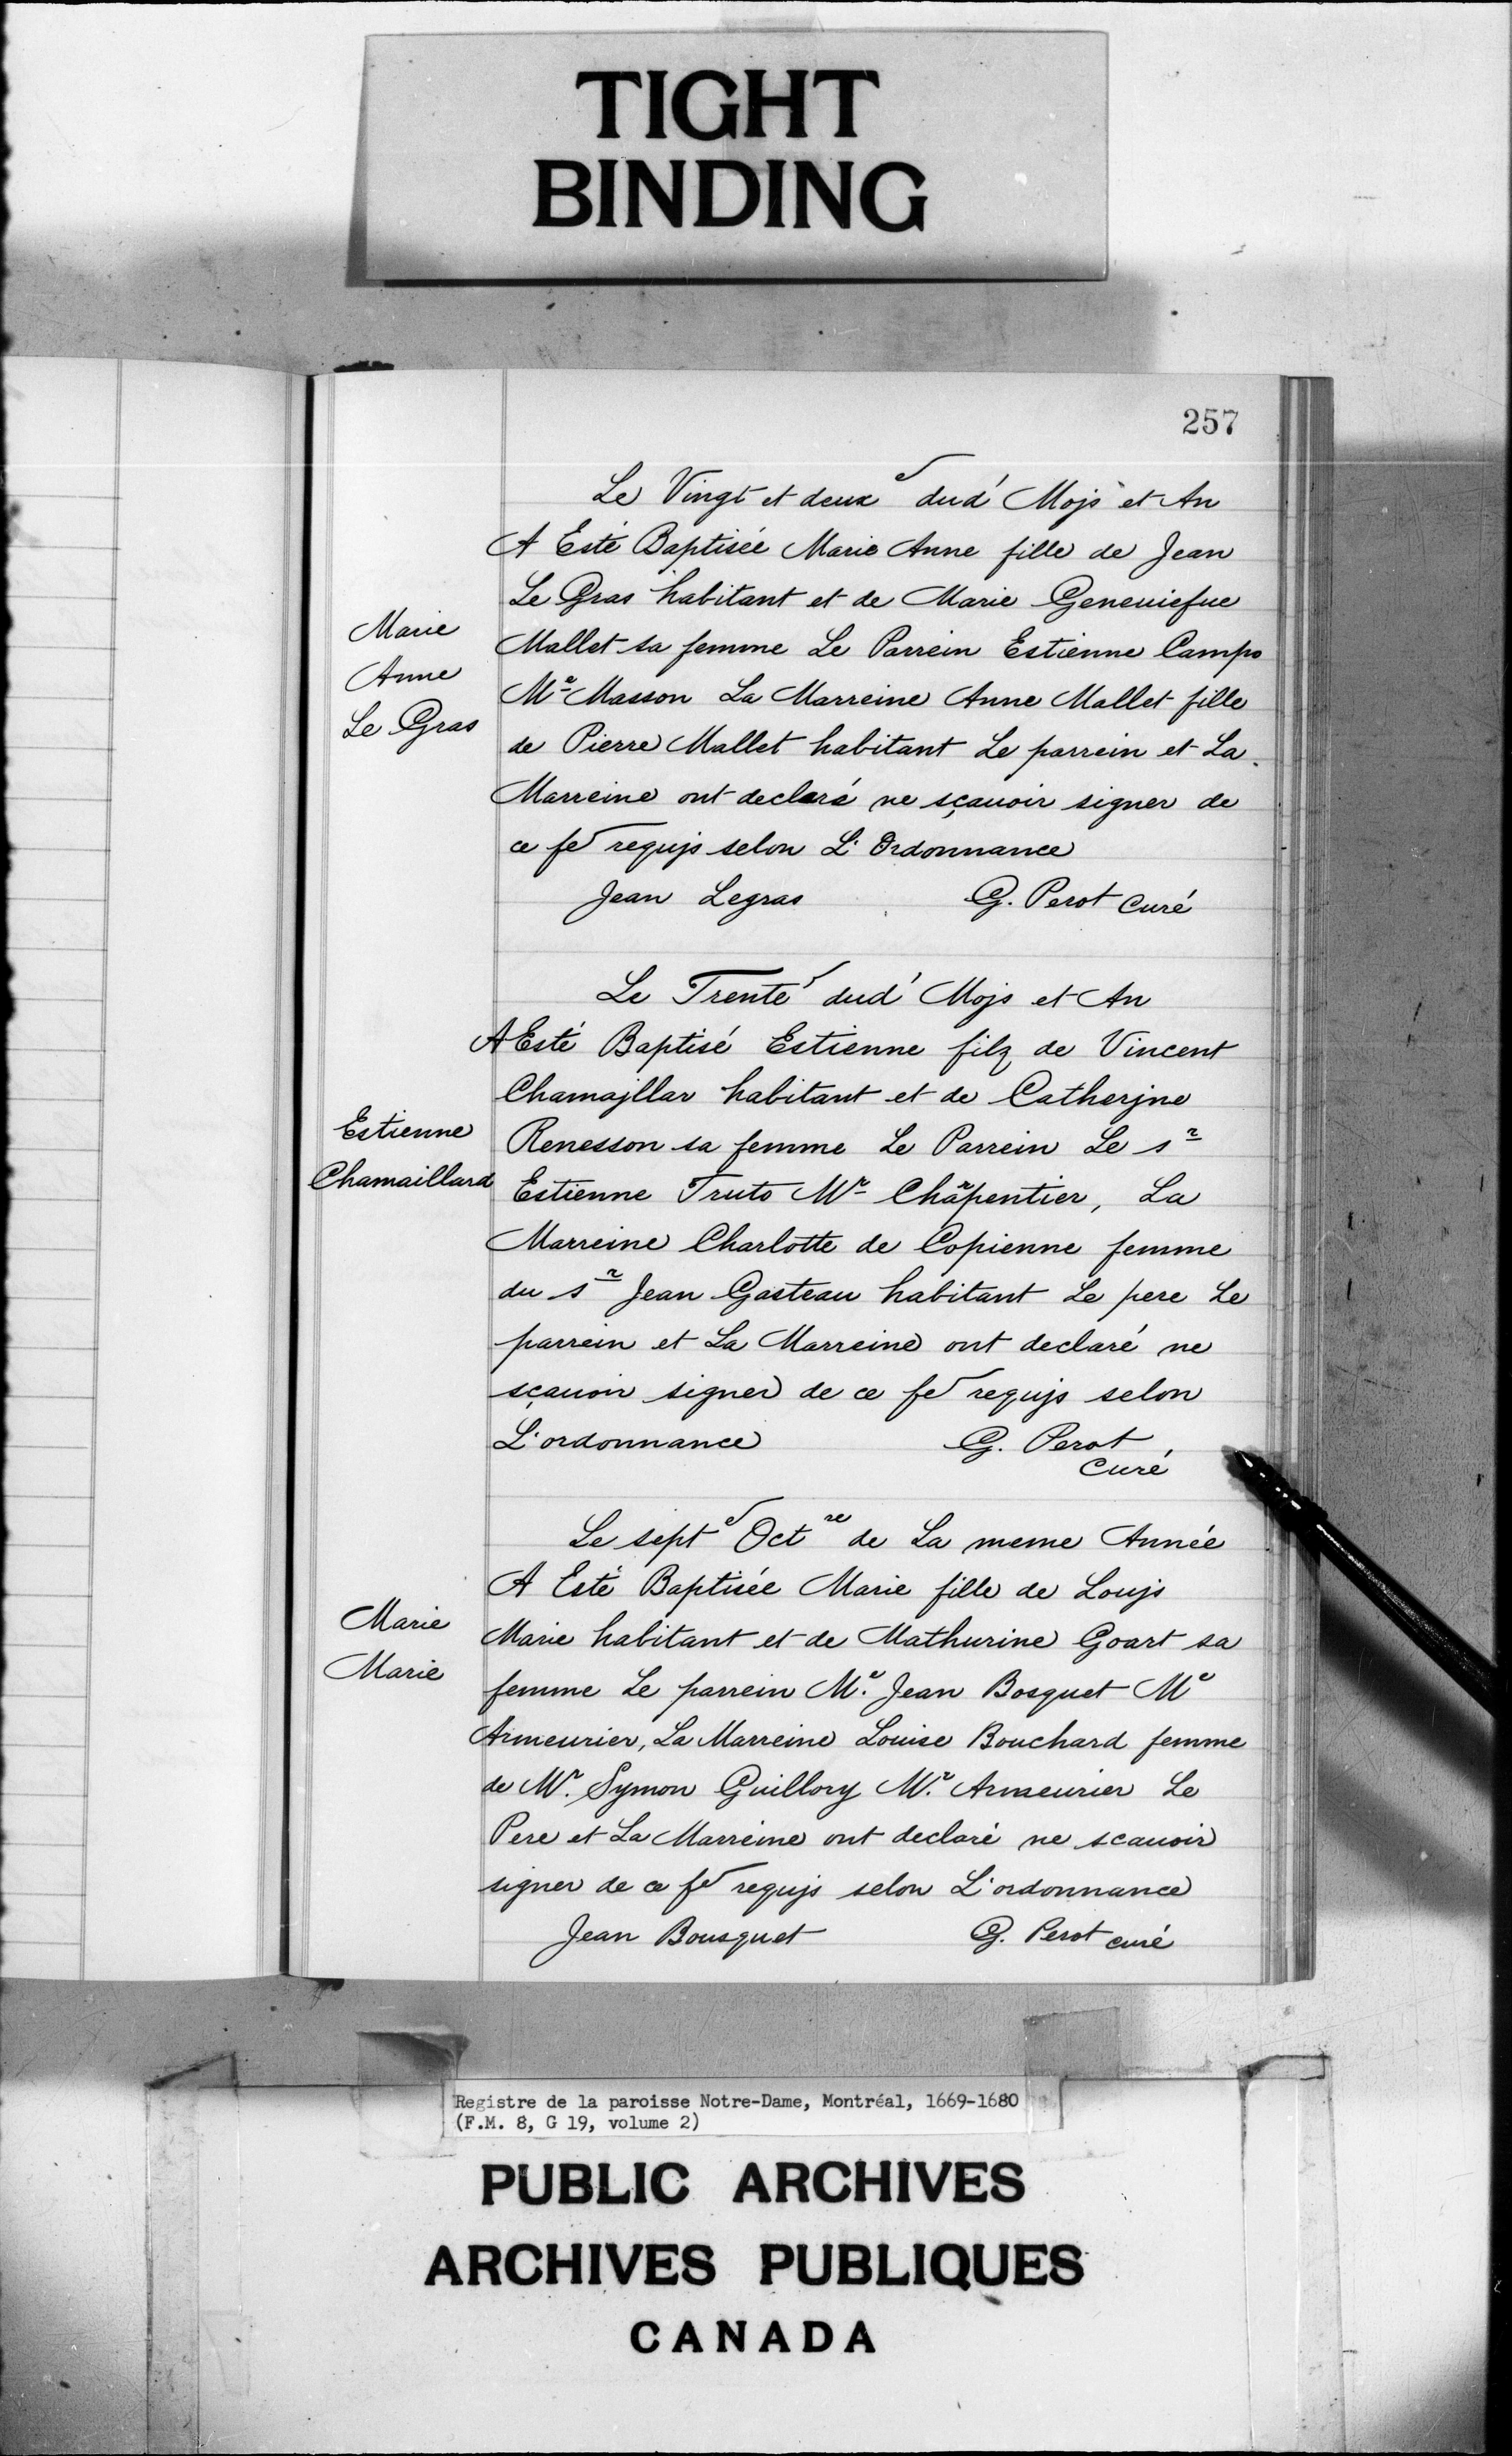 TIGHT
BINDING
257
Le Vingt et deux e dud' Mojs et An
A Esté Baptisée Marie Anne fille de Jean
Le Gras habitant et de Marie Geneuiefue
Marie
Anne
Le Gras
Mallet sa femme Le Parrein Estienne Campo
Me Masson La Marreine Anne Mallet fille
de Pierre Mallet habitant Le parrein et La
Marreine ont declaré ne sçauoir signer de
ce fe requjs selon L'Ordonnance
Jean Legras G. Perot Curé
Le Trente dud' Mojs et An
A Esté Baptisé Estienne filz de Vincent
Chamajllar habitant et de Catherjne
Estienne
Chamaillard
Renesson sa femme Le Parrein Le sr
Estienne Truto Mr Charpentier, La
Marreine Charlotte de Copienne femme
du sr Jean Gasteau habitant Le pere Le
parrein et La Marreine ont declaré ne
sçauoir signer de ce fe requjs selon
L'ordonnance G. Perot
Curé
Le sept e Octre de La meme Année
A Esté Baptisée Marie fille de Loujs
Marie
Marie
Marie habitant et de Mathurine Goart sa
femme Le parrein Me. Jean Bosquet Me
Armeurier, La Marreine Louise Bouchard femme
de Mr. Symon Guillory Mr. Armeurier Le
Pere et La Marreine ont declaré ne scauoir
signer de ce fe requjs selon L'ordonnance
Jean Bousquet G. Perot curé
Registre de la paroisse Notre-Dame, Montréal, 1669-1680
(F.M. 8, G 19, volume 2)
PUBLIC ARCHIVES
ARCHIVES PUBLIQUES
CANADA